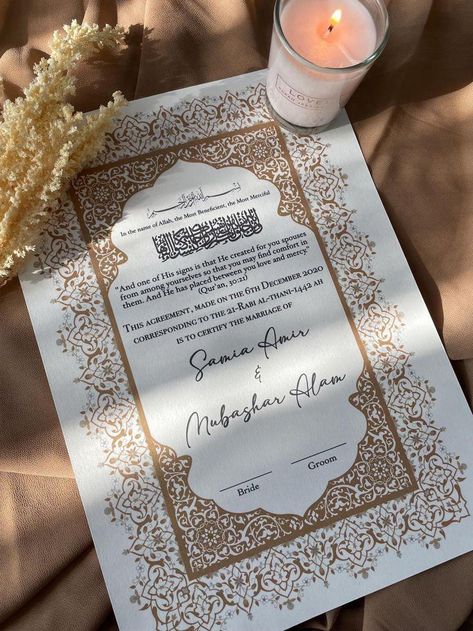 LOVE
In the name of Allah, the Most Beneficient, the Most Merciful
"And one of His signs is that He created for you spouses
from among yourselves so that you may find comfort in
them. And He has placed between you love and mercy."
(Qu'an, 30:21)
THIS AGREEMENT, MADE ON THE 6TH DECEMBER 2020
CORRESPONDING TO THE 21-RABI AL-THANI-1442 AH
IS TO CERTIFY THE MARRIAGE OF
Samia Amir
&
Mubashar Alam
Bride
Groom